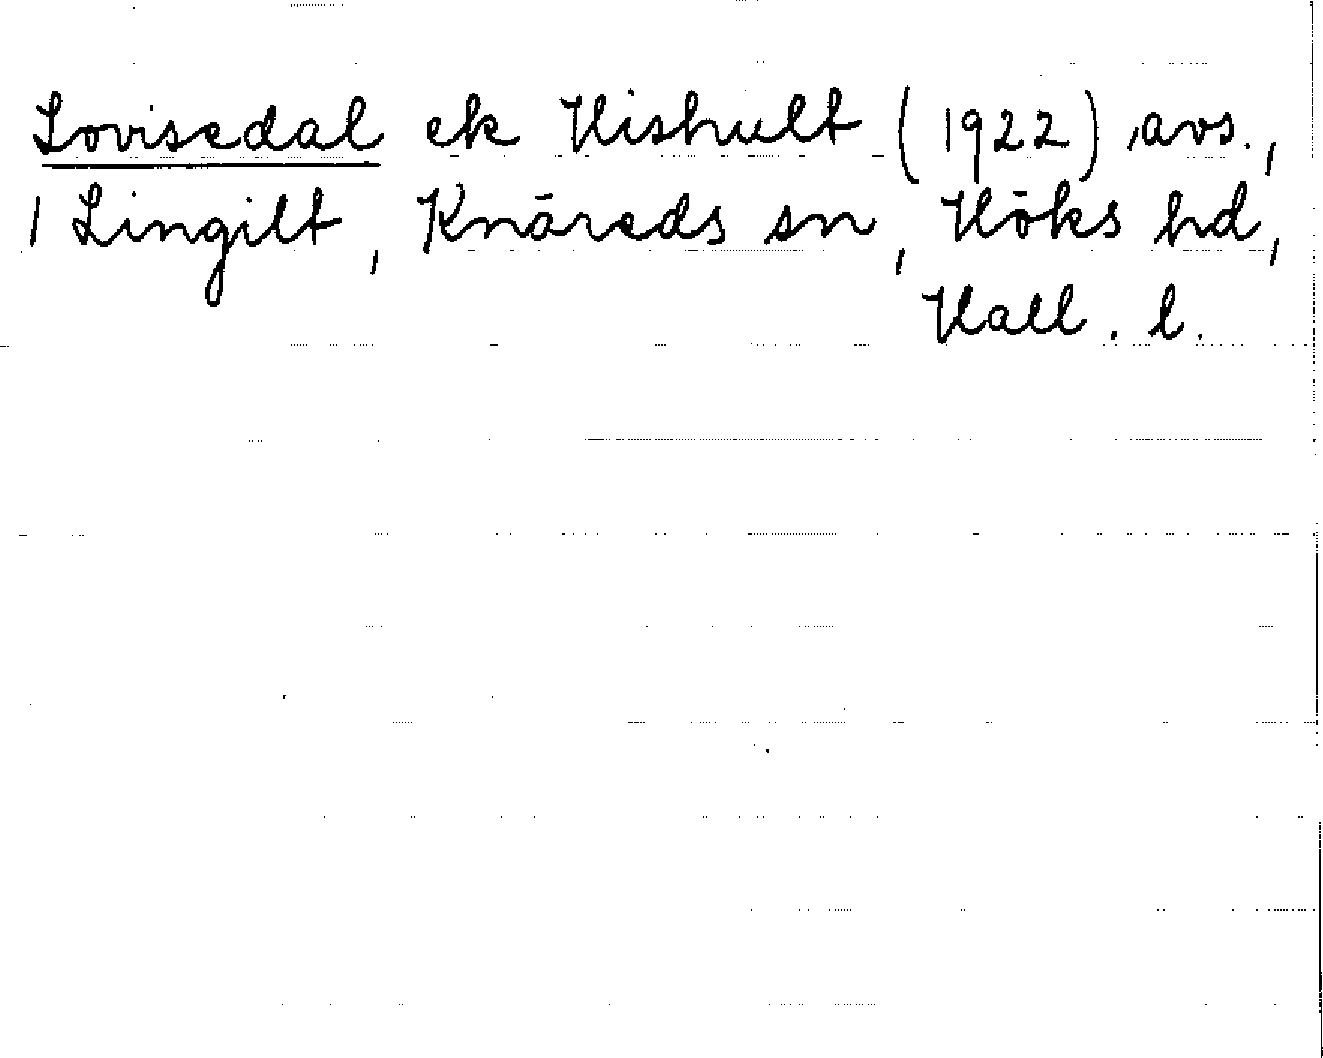 Lovisedal ek Hishult (1922), avs.,
1 Lingilt, Knäreds sn, Höks hd,
Hall. l.